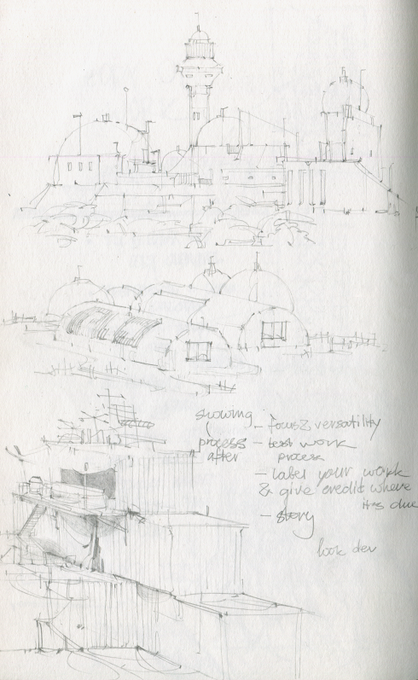 showing
process
after
- focus & versatility
- best work
process
- label your work
& give credit where
its due
- story
look dev